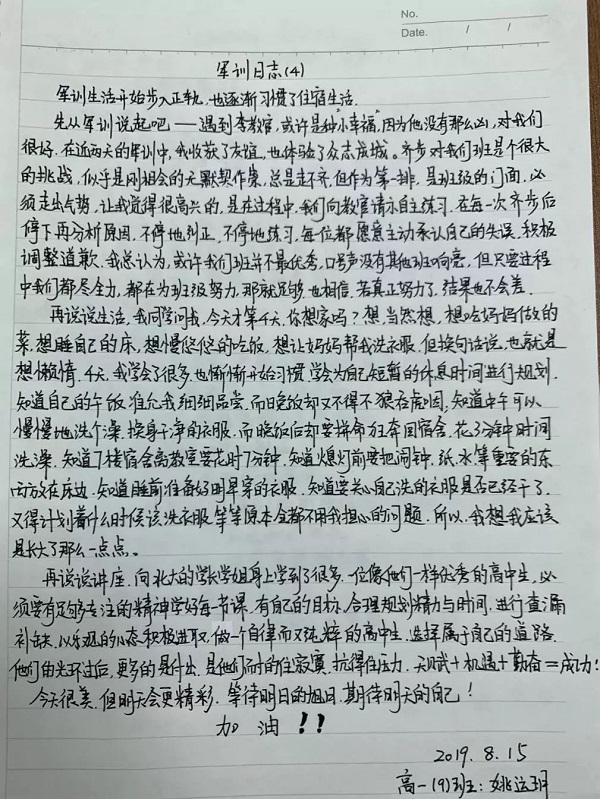 No.
Date. / /
军训日志(4)
军训生活开始步入正轨,也逐渐习惯了住宿生活.
先从军训说起吧——遇到李教官,或许是种"小幸福",因为他没有那么凶,对我们
很好.在近两天的军训中,我收获了友谊,也体验了众志成城。齐步对我们班是个很大
的挑战,似乎是刚相会的无默契作祟,总是赶不齐,但作为第一排,是班级的门面,必
须走出气势,让我觉得很高兴的,是在过程中,我们向教官请示自主练习.在每一次齐步后
停下再分析原因,不停地纠正,不停地练习,每位都愿意主动承认自己的失误,积极
调整道歉.我总认为,或许我们班并不最优秀,口号声没有其他班响亮,但只要过程
中我们都尽全力,都在为班级努力,那就足够.也相信,若真正努力了,结果也不会差.
再说说生活,我同学问我,今天才第4天,你想家吗?想,当然想,想吃妈妈做的
菜,想睡自己的床,想慢悠悠的吃饭,想让妈妈帮我洗衣服.但换句话说,也就是
想懒惰.4天,我学会了很多.也渐渐开始习惯,学会为自己短暂的休息时间进行规划.
知道自己的午饭准允我细细品尝,而晚饭却又不得不狼吞虎咽,知道中午可以
慢慢地洗个澡,换身干净的衣服.而晚饭后却要拼命狂奔回宿舍,花3分钟时间
洗澡.知道7楼宿舍离教室要花时7分钟.知道熄灯前要把闹钟、纸、水等重要的东
西放在床边.知道睡前准备好明早穿的衣服.知道要关心自己洗的衣服是否已经干了.
又得计划着什么时候该洗衣服等等原本全都不用我担心的问题.所以,我想我应该
是长大了那么一点点。
再说说讲座.向北大的学长学姐身上学到了很多.一位像他们一样优秀的高中生,必
须要有足够专注的精神学好每一节课.有自己的目标,合理规划精力与时间,进行查漏
补缺.以乐观的心态积极进取,做一个自律而又纯粹的高中生.选择属于自己的道路.
他们的光环过后,更多的是付出.是他们耐的住寂寞,抗得住压力.天赋+机遇+勤奋=成功!
今天很美.但明天会更精彩.等待明日的旭日.期待明天的自己!
加油!!
2019.8.15
高一(9)班:姚运玥